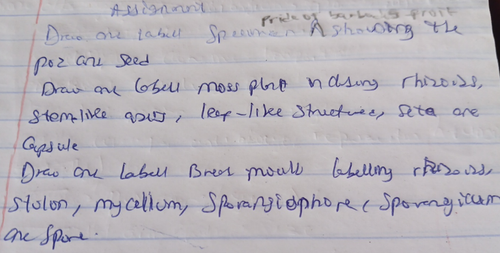 Assignment
pride of barbados fruit
Draw and labell Specimen A showing the
pod and seed
Draw and labell moss plant including rhizoids,
stem-like axis, leaf-like structure, seta and
Capsule
Draw and labell Bread mould labelling rhizoids,
stolon, mycelium, sporangiophore, sporangium
and spore.